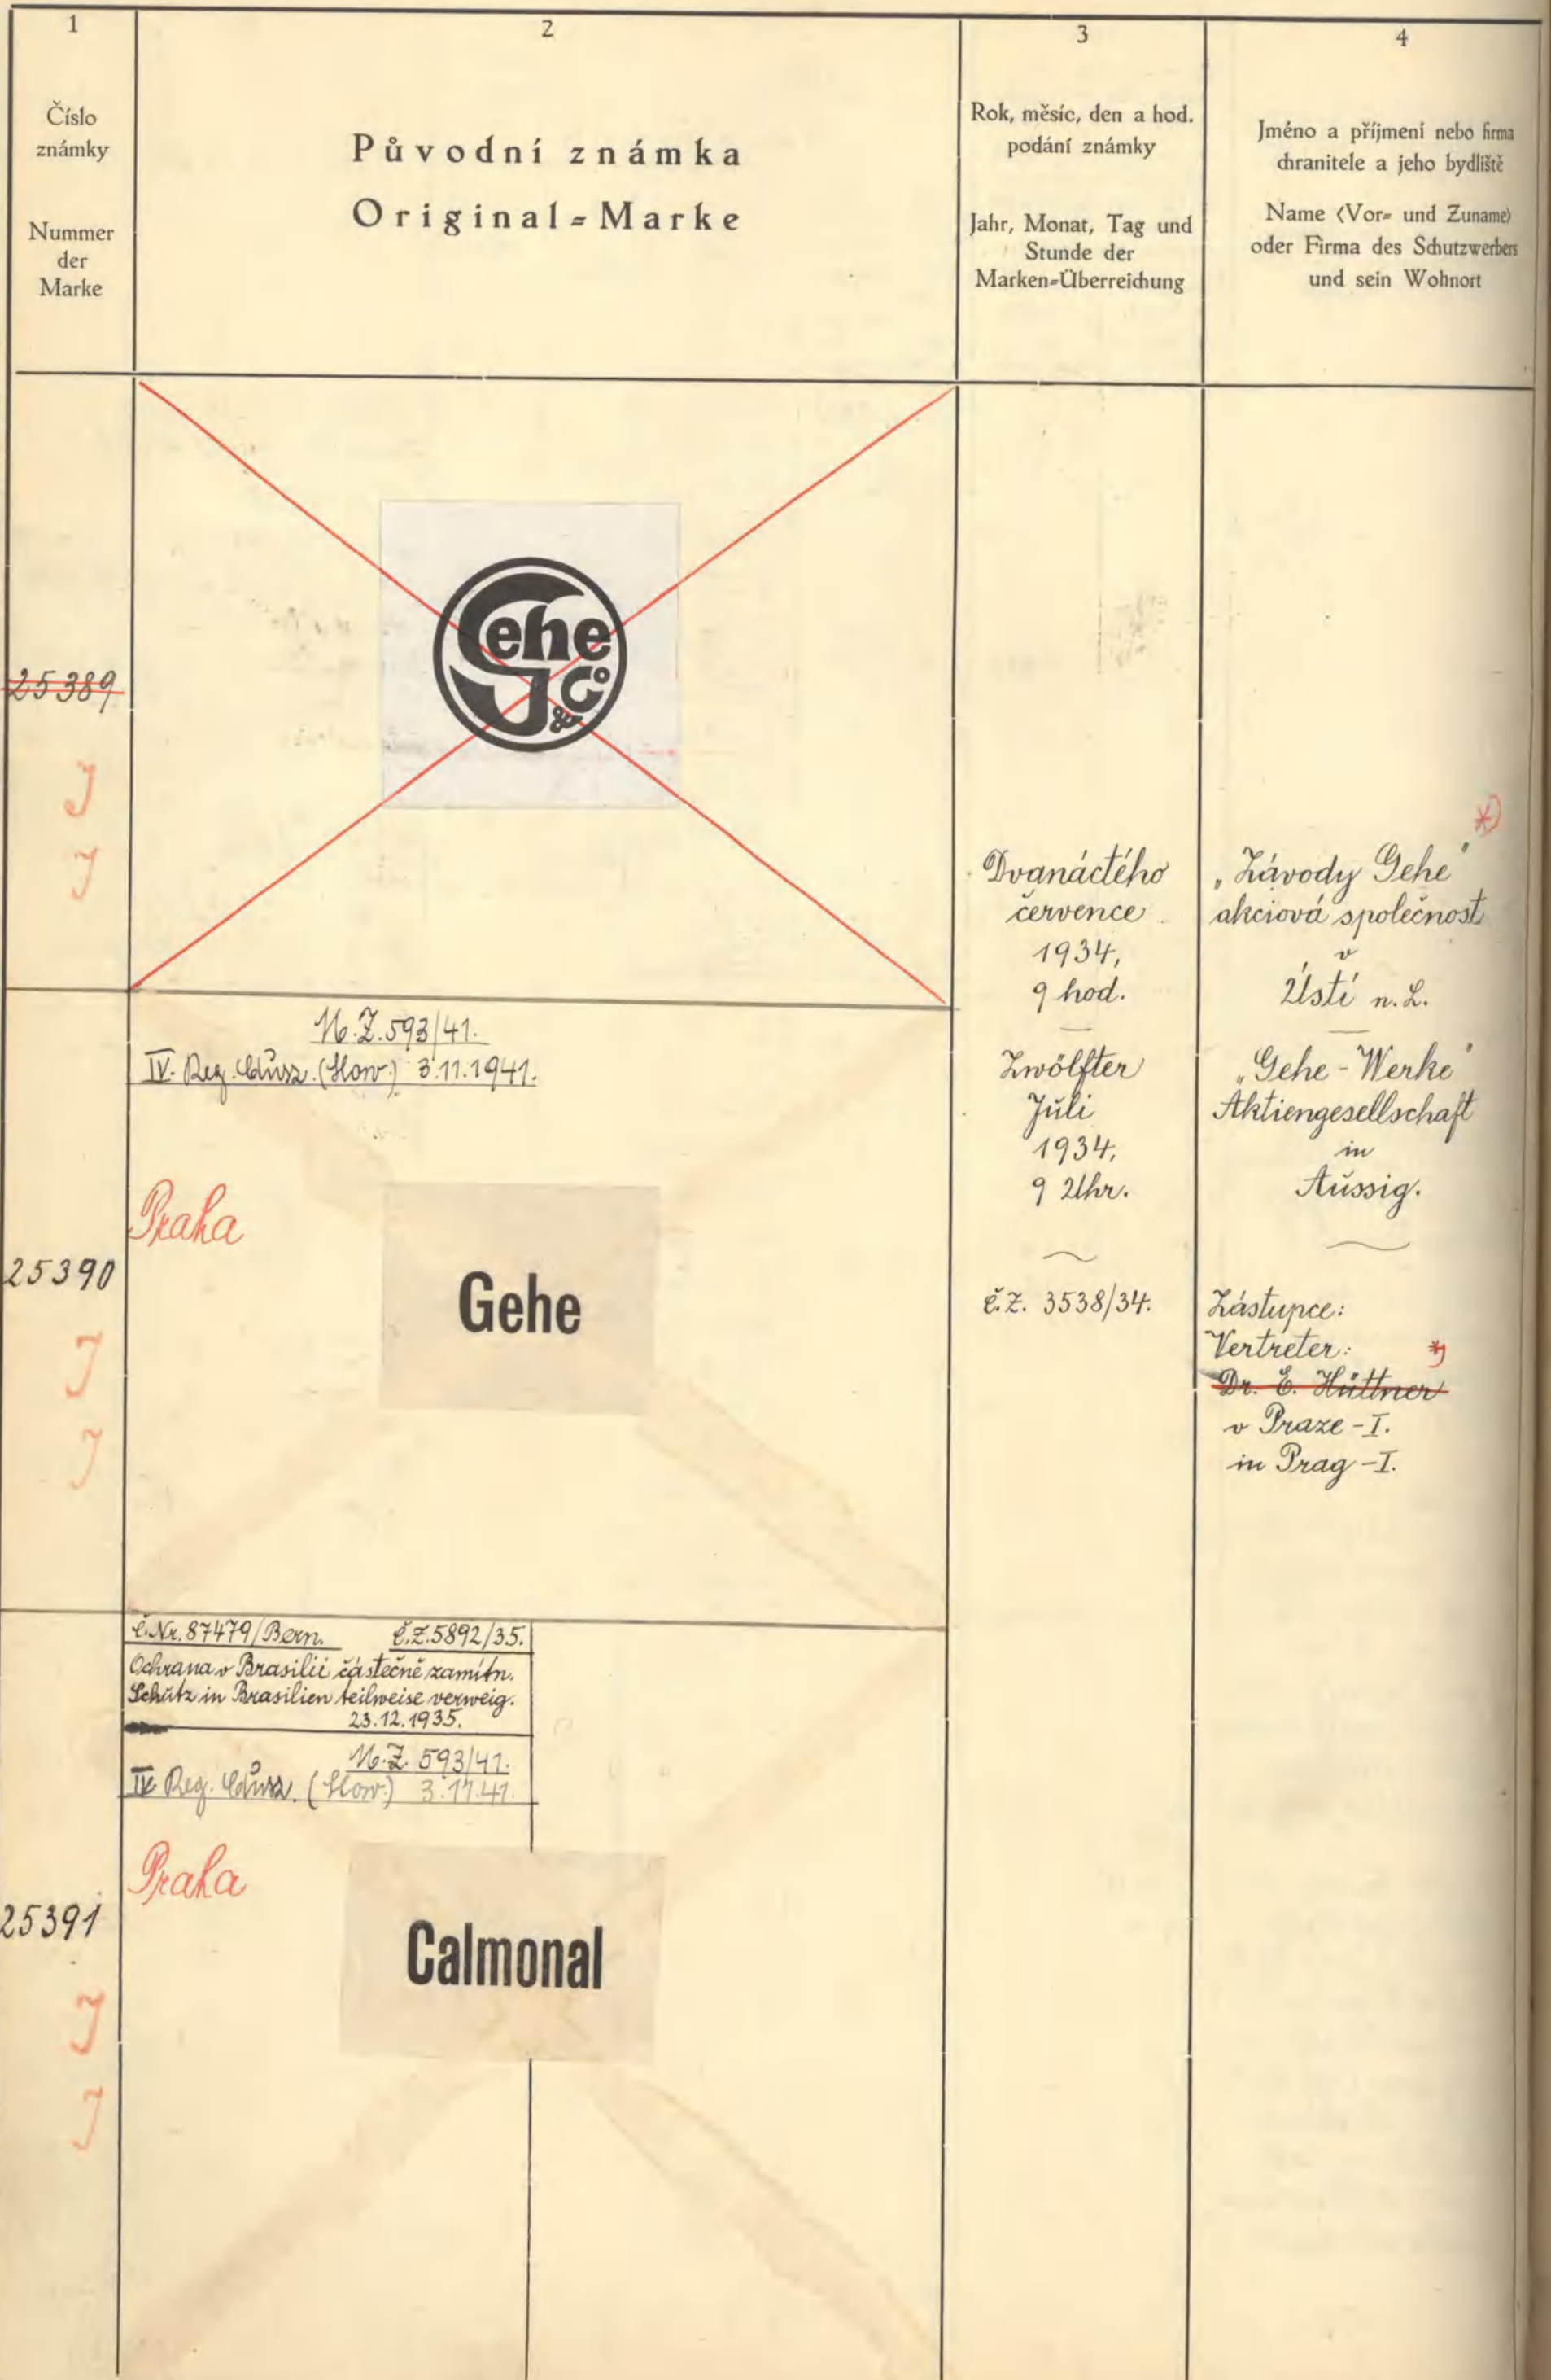 1
Číslo
známky
Nummer
der
Marke
2
Původní známka
Original=Marke
3
Rok, měsíc, den a hod.
podání známky
Jahr, Monat, Tag und
Stunde der
Marken=Überreichung
4
Jméno a příjmení nebo firma
chranitele a jeho bydliště
Name (Vor= und Zuname)
oder Firma des Schutzwerbers
und sein Wohnort
25389
J
J
Gehe
& Co
Dvanáctého
července
1934,
9 hod.
Zwölfter
Juli
1934,
9 Uhr.
č.z. 3538/34.
*)
„Závody Gehe"
akciová společnost
v
Ústí n. L.
„Gehe-Werke"
Aktiengesellschaft
in
Aussig.
Zástupce:
Vertreter: *)
Dr. E. Hüttner
v Praze-I.
in Prag-I.
M.Z. 593/41.
IV. Reg. (Slow.) 3.11.1941.
Praha
25390
J
J
Gehe
č.Nr. 87479/Bern. č.z. 5892/35.
Ochrana v Brasilii částečně zamítn.
Schutz in Brasilien teilweise verweig.
23.12.1935.
M.Z. 593/41.
IV. Reg. (Slow.) 3.11.41.
Praha
25391
J
J
Calmonal